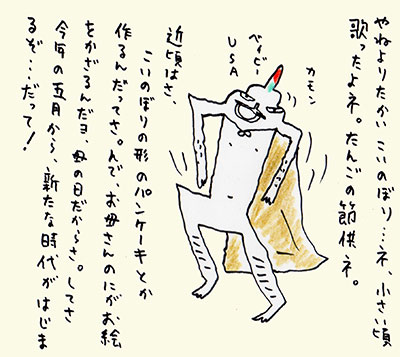 やねよりたかい こいのぼり…ネ、小さい頃
歌ったよネ。たんごの節供ネ。
カモン
ベイビー
USA
近頃はさ、
こいのぼりの形のパンケーキとか
作るんだってさ。んで、お母さんのにがお絵
をかざるんだヨ、母の日だからさ。してさ
今年の五月から、新たな時代がはじま
るぞ…だって!